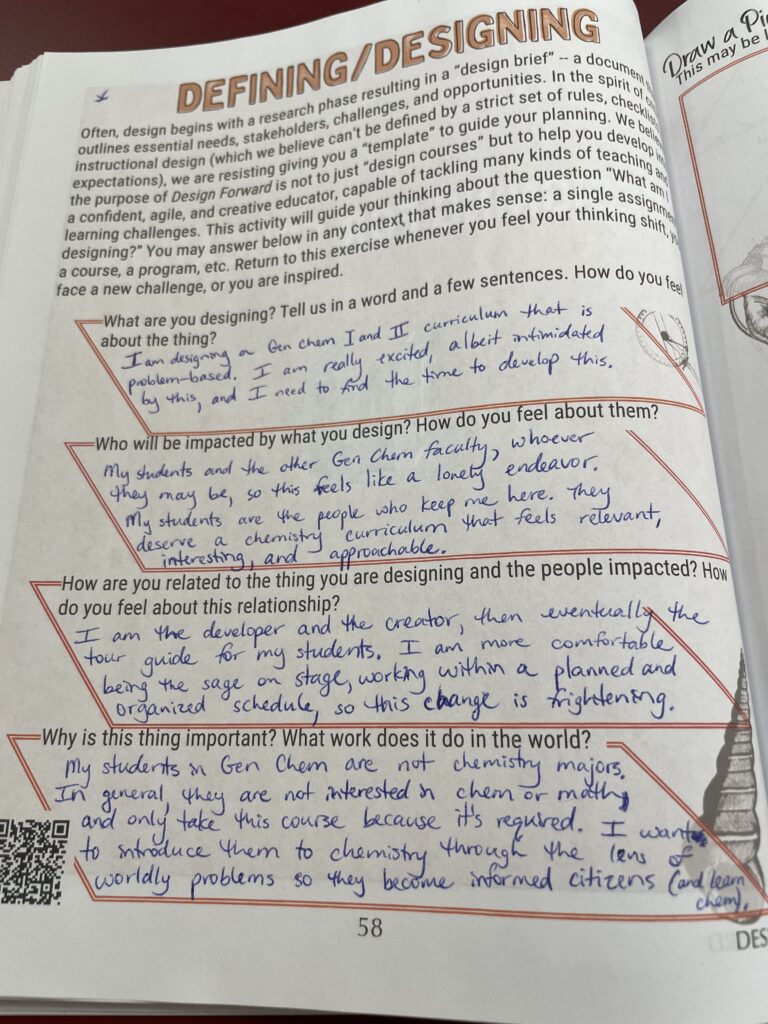 DEFINING/DESIGNING
Often, design begins with a research phase resulting in a "design brief" -- a document
outlines essential needs, stakeholders, challenges, and opportunities. In the spirit of
instructional design (which we believe can't be defined by a strict set of rules,
expectations), we are resisting giving you a "template" to guide your planning. We
the purpose of Design Forward is not to just "design courses" but to help you develop
a confident, agile, and creative educator, capable of tackling many kinds of teaching
learning challenges. This activity will guide your thinking about the question "What am I
designing?" You may answer below in any context that makes sense: a single
a course, a program, etc. Return to this exercise whenever you feel your thinking shift,
face a new challenge, or you are inspired.
What are you designing? Tell us in a word and a few sentences. How do you feel
about the thing?
I am designing a Gen Chem I and II curriculum that is
problem-based. I am really excited, albeit intimidated
by this, and I need to find the time to develop this.
Who will be impacted by what you design? How do you feel about them?
My students and the other Gen Chem faculty, whoever
they may be, so this feels like a lonely endeavor.
My students are the people who keep me here. They
deserve a chemistry curriculum that feels relevant,
interesting, and approachable.
How are you related to the thing you are designing and the people impacted? How
do you feel about this relationship?
I am the developer and the creator, then eventually the
tour guide for my students. I am more comfortable
being the sage on stage, working within a planned and
organized schedule, so this change is frightening.
Why is this thing important? What work does it do in the world?
My students in Gen Chem are not chemistry majors.
In general, they are not interested in chem or math,
and only take this course because it's required. I want
to introduce them to chemistry through the lens of
worldly problems so they become informed citizens (and learn
chem).
58
Draw a
This may be
DES